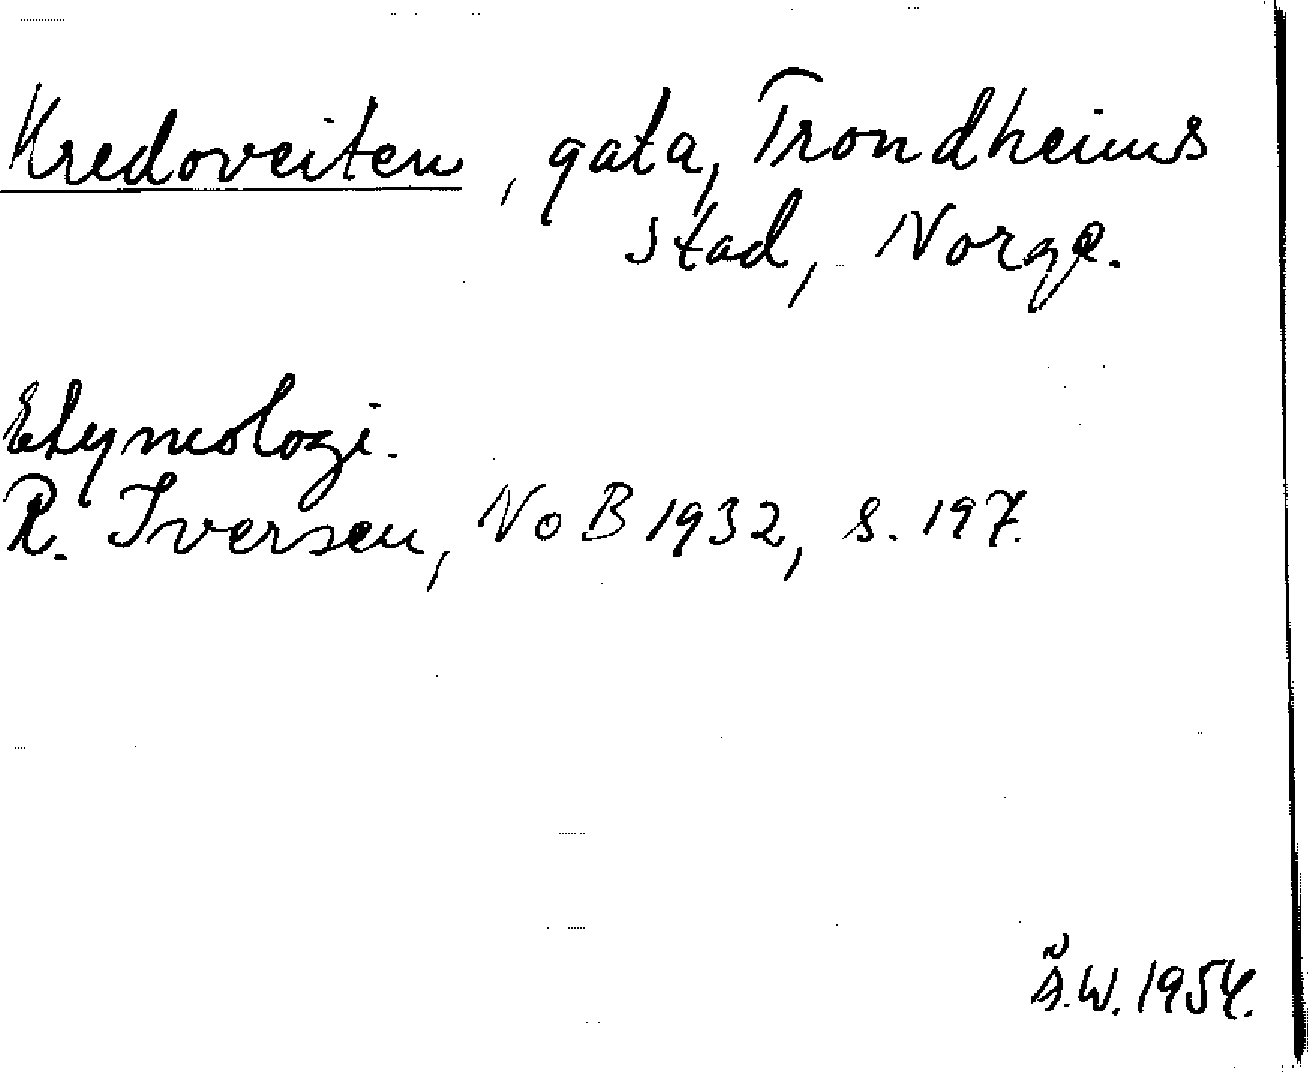 Kredoveiten, gata, Trondheims
stad, Norge.
Etymologi.
R. Iversen, NoB 1932, s. 197.
Å.W. 1954.